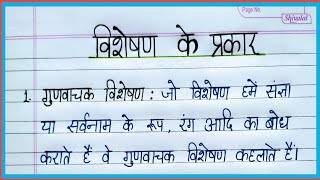 Page No.
Shivalal
विशेषण के प्रकार
1. गुणवाचक विशेषण : जो विशेषण हमें संज्ञा
या सर्वनाम के रूप, रंग आदि का बोध
कराते हैं वे गुणवाचक विशेषण कहलाते हैं।